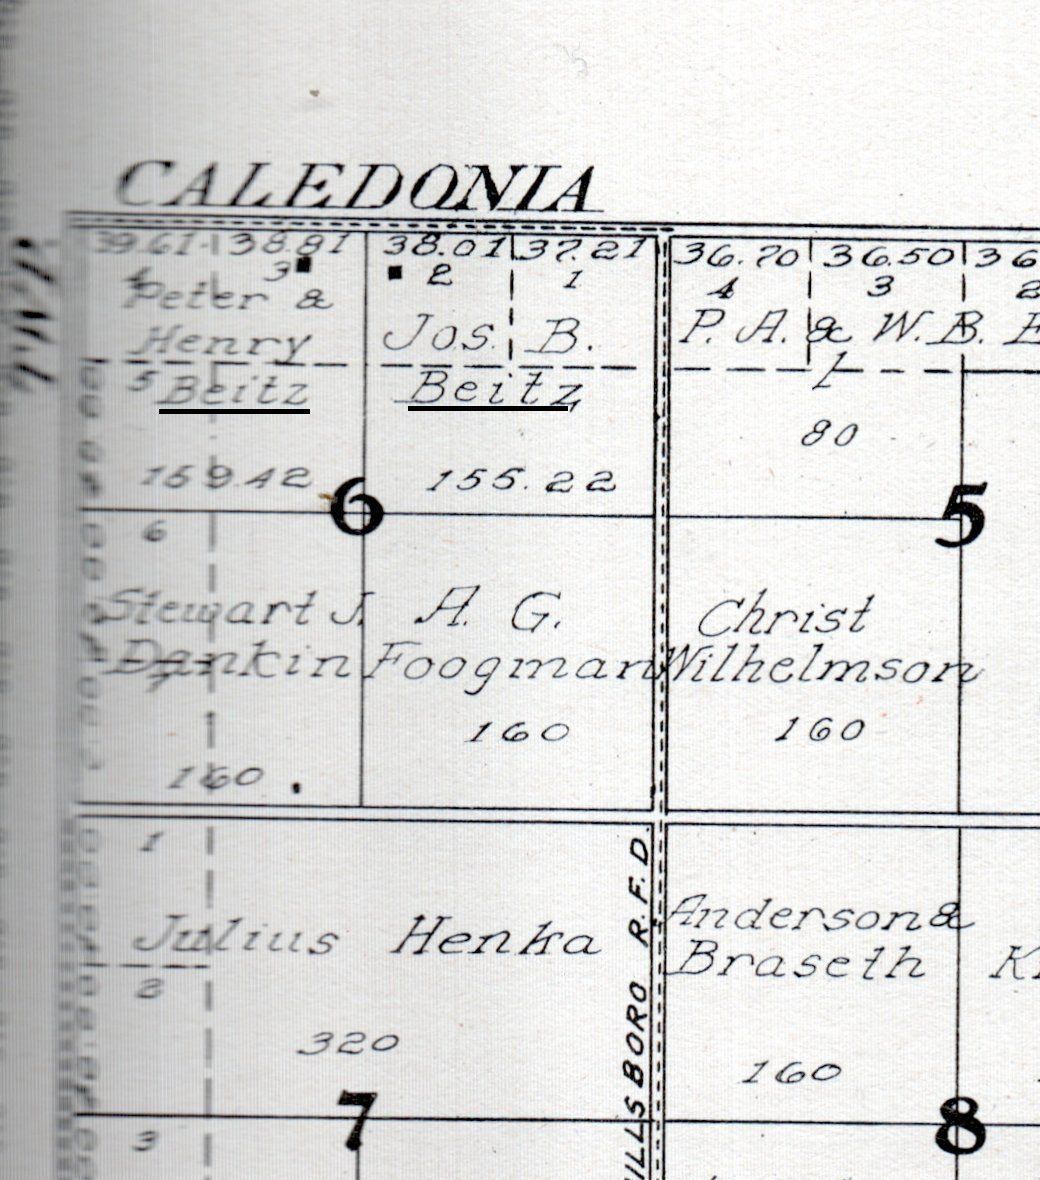 CALEDONIA
39.61 38.81 38.01 37.21 36.70 36.50 36
4 3 2 1 4 3 2
Peter &
Henry
5 Beitz
159.42
Jos. B.
Beitz
155.22
P. A. & W. B. E
1
80
6 5
6
Stewart J.
Dankin
7
160
A. G.
Foogman
160
Christ
Wilhelmson
160
1
Julius Henka
2
320
7
3
ILLSBORO R.F.D.
Anderson &
Braseth
160
K
8